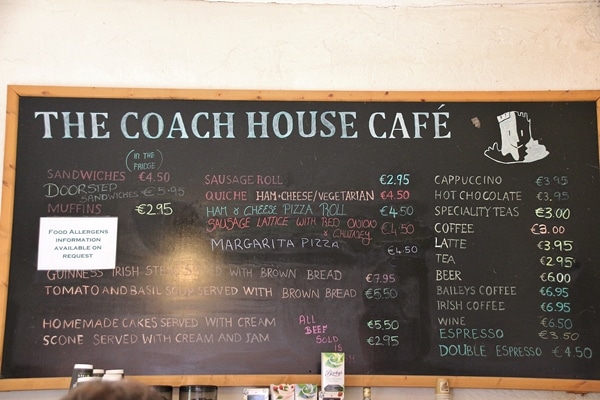 THE COACH HOUSE CAFÉ
(IN THE FRIDGE)
SANDWICHES €4.50
DOORSTEP SANDWICHES €5.95
MUFFINS €2.95
FOOD ALLERGENS
INFORMATION
AVAILABLE ON
REQUEST
SAUSAGE ROLL €2.95
QUICHE HAM+CHEESE/VEGETARIAN €4.50
HAM & CHEESE PIZZA ROLL €4.50
SAUSAGE LATTICE WITH RED ONION & CHUTNEY €4.50
MARGARITA PIZZA €4.50
GUINNESS IRISH STEW SERVED WITH BROWN BREAD €7.95
TOMATO AND BASIL SOUP SERVED WITH BROWN BREAD €5.50
HOMEMADE CAKES SERVED WITH CREAM €5.50
SCONE SERVED WITH CREAM AND JAM €2.95
ALL
BEEF
SOLD
IS
CAPPUCCINO €3.95
HOT CHOCOLATE €3.95
SPECIALITY TEAS €3.00
COFFEE €3.00
LATTE €3.95
TEA €2.95
BEER €6.00
BAILEYS COFFEE €6.95
IRISH COFFEE €6.95
WINE €6.50
ESPRESSO €3.50
DOUBLE ESPRESSO €4.50